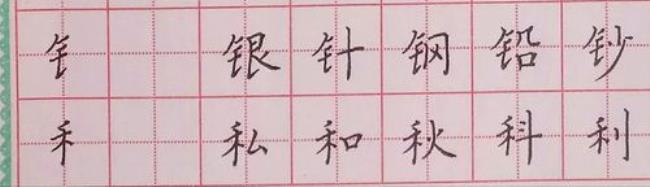 钅 银 针 钢 铅 钞
禾 私 和 秋 科 利